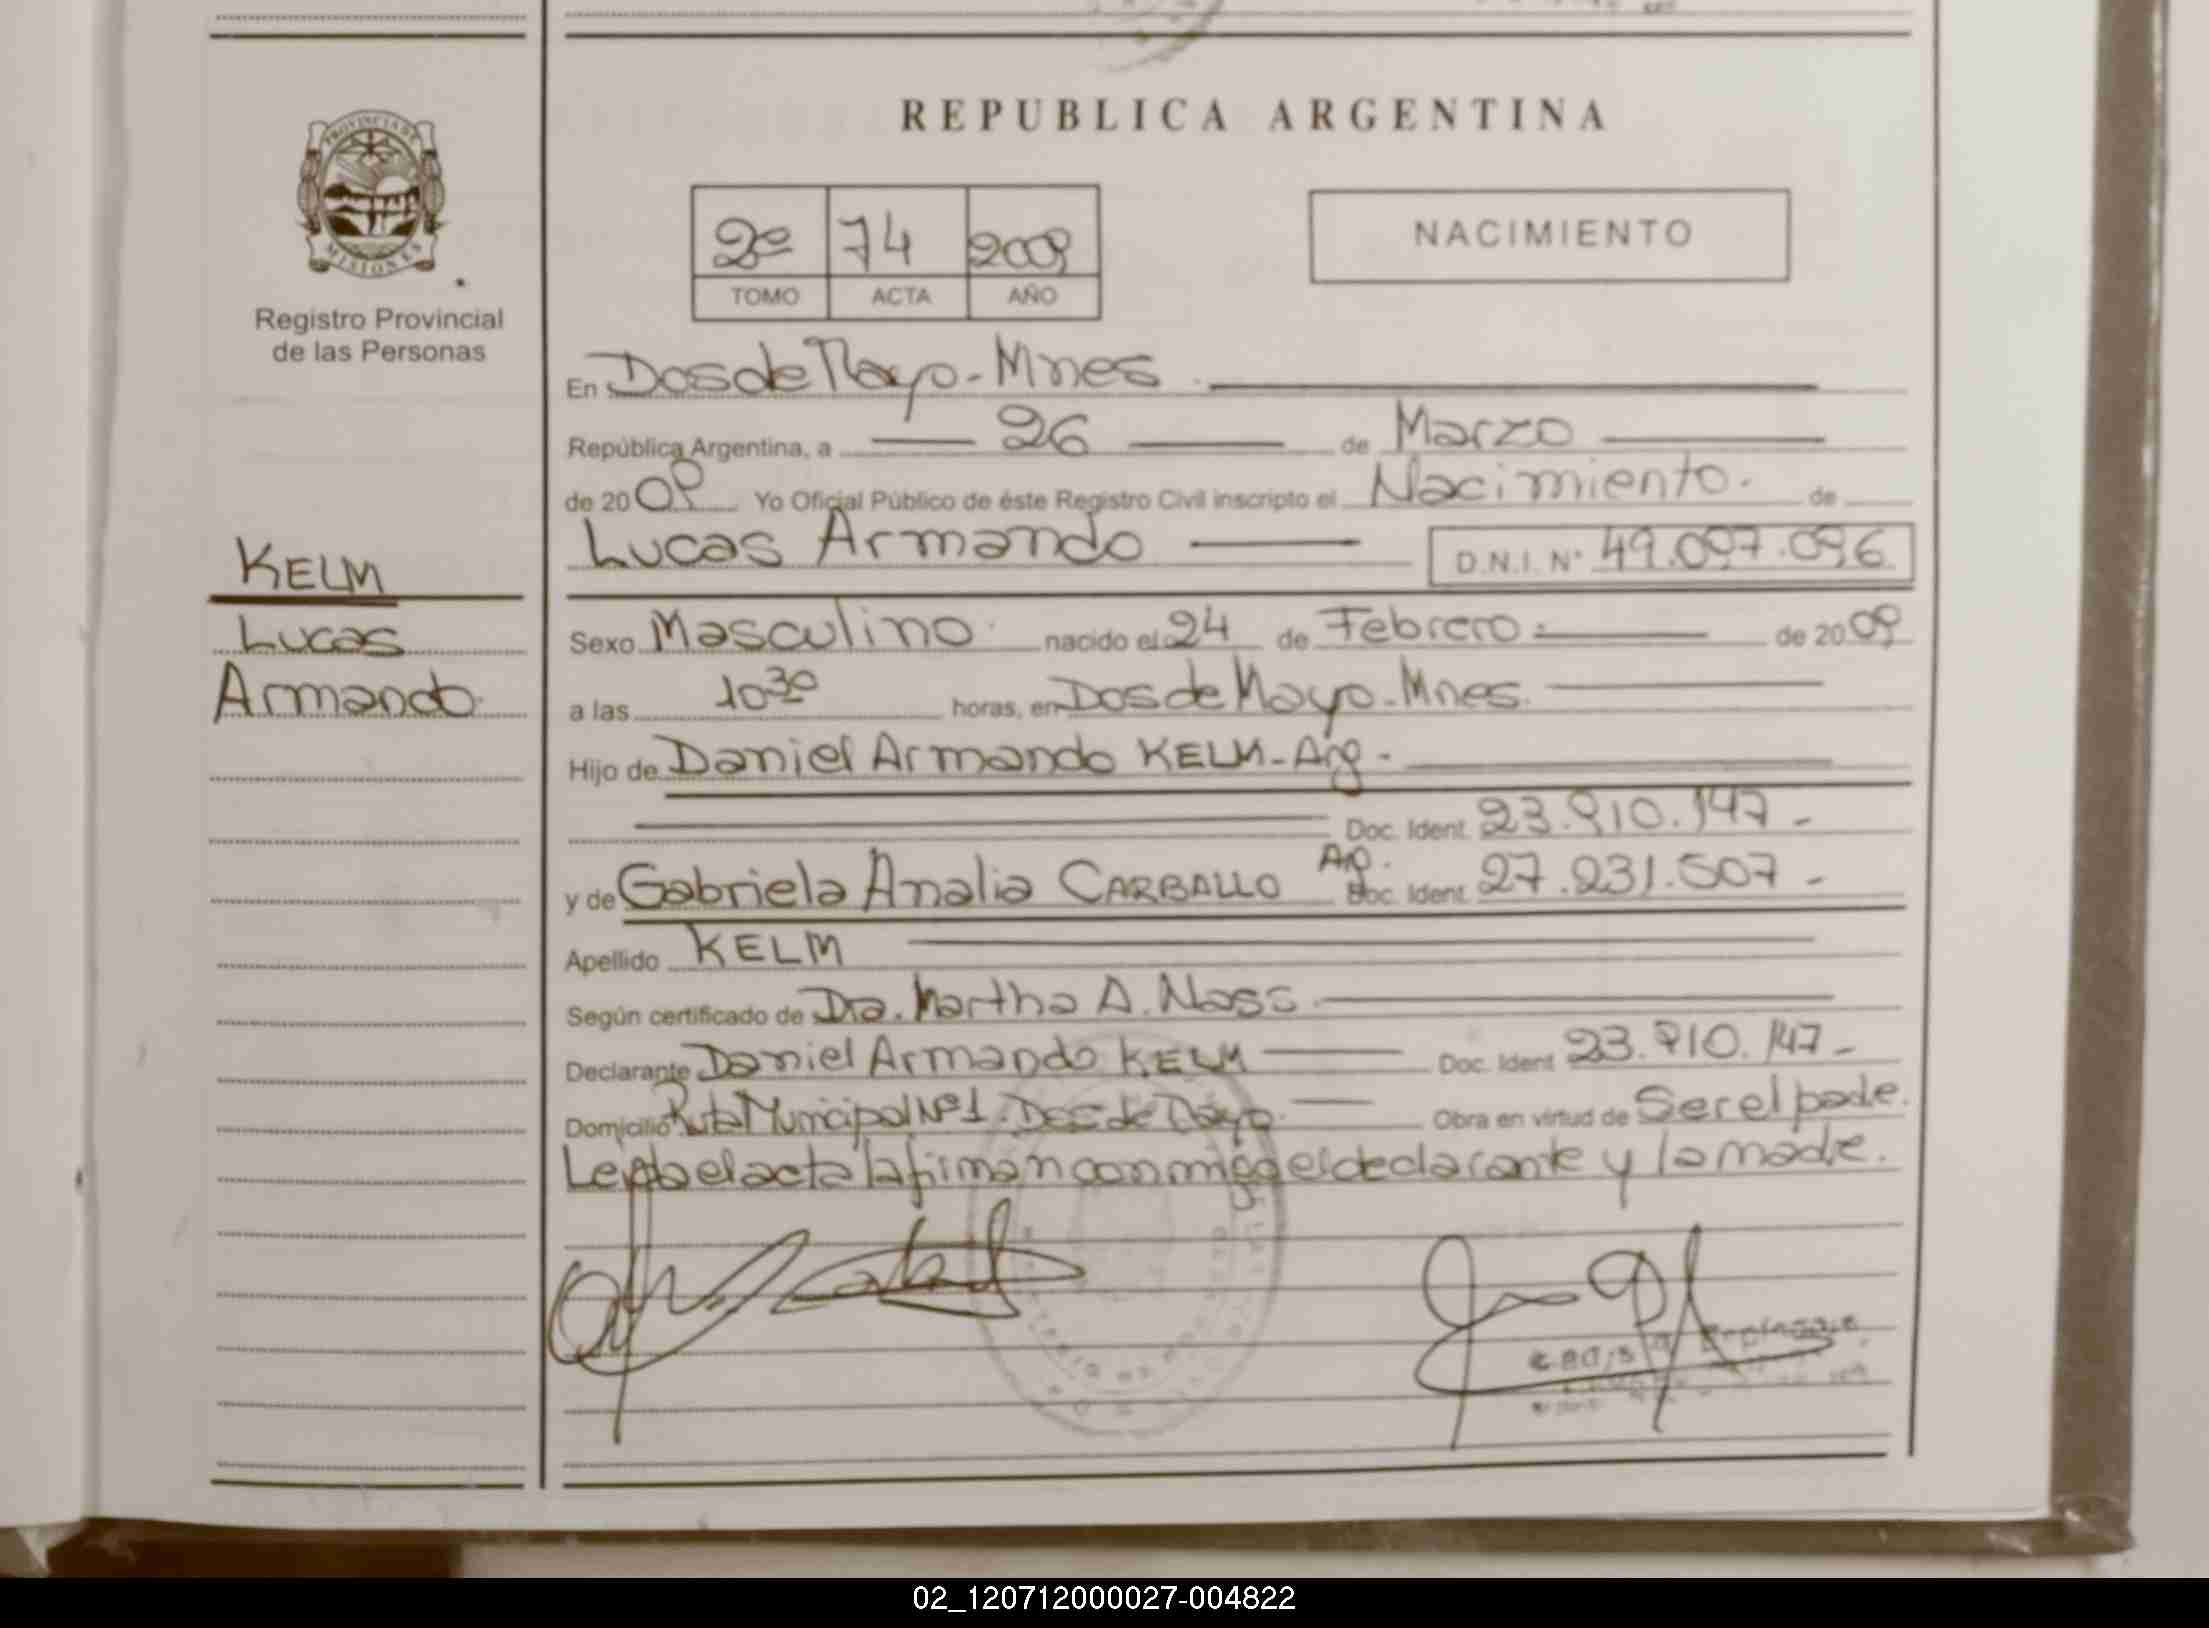 REPUBLICA ARGENTINA
PROVINCIA DE
MISIONES
Registro Provincial
de las Personas
2º 74 2009
TOMO ACTA AÑO
NACIMIENTO
KELM
Lucas
Armando
En Dos de Mayo - Mnes
República Argentina, a 26 de Marzo
de 2009 Yo Oficial Público de éste Registro Civil inscripto el Nacimiento. de
Lucas Armando D.N.I. Nº 49.097.096
Sexo Masculino nacido el 24 de Febrero de 2009
a las 10³⁰ horas, en Dos de Mayo - Mnes.
Hijo de Daniel Armando KELM - Arg -
Doc. Ident. 23.910.147 -
y de Gabriela Analia CARBALLO Arg. Doc. Ident. 27.231.507 -
Apellido KELM
Según certificado de Dra. Martha A. Nass
Declarante Daniel Armando KELM Doc. Ident 23.910.147 -
Domicilio Ruta Municipal Nº 1. Dos de Mayo Obra en virtud de Ser el padre.
Leida el acta la firman conmigo el declarante y la madre.
02_120712000027-004822